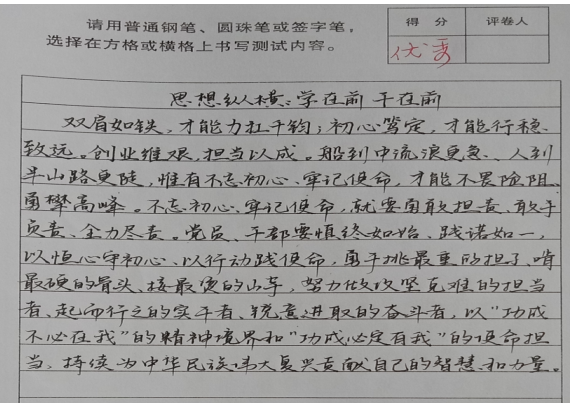 请用普通钢笔、圆珠笔或签字笔，
选择在方格或横格上书写测试内容。
得 分
评卷人
优秀
思想纵横：学在前 干在前
双肩如铁，才能力扛千钧；初心笃定，才能行稳
致远。创业维艰，担当以成。船到中流浪更急、人到
半山路更陡，惟有不忘初心、牢记使命，才能不畏险阻、
勇攀高峰。不忘初心、牢记使命，就要勇敢担责、敢于
负责、全力尽责。党员、干部要慎终如始、践诺如一，
以恒心守初心、以行动践使命，勇于挑最重的担子、啃
最硬的骨头、接最烫的山芋，努力做攻坚克难的担当
者、起而行之的实干者、锐意进取的奋斗者，以“功成
不必在我”的精神境界和“功成必定有我”的使命担
当，持续为中华民族伟大复兴贡献自己的智慧和力量。